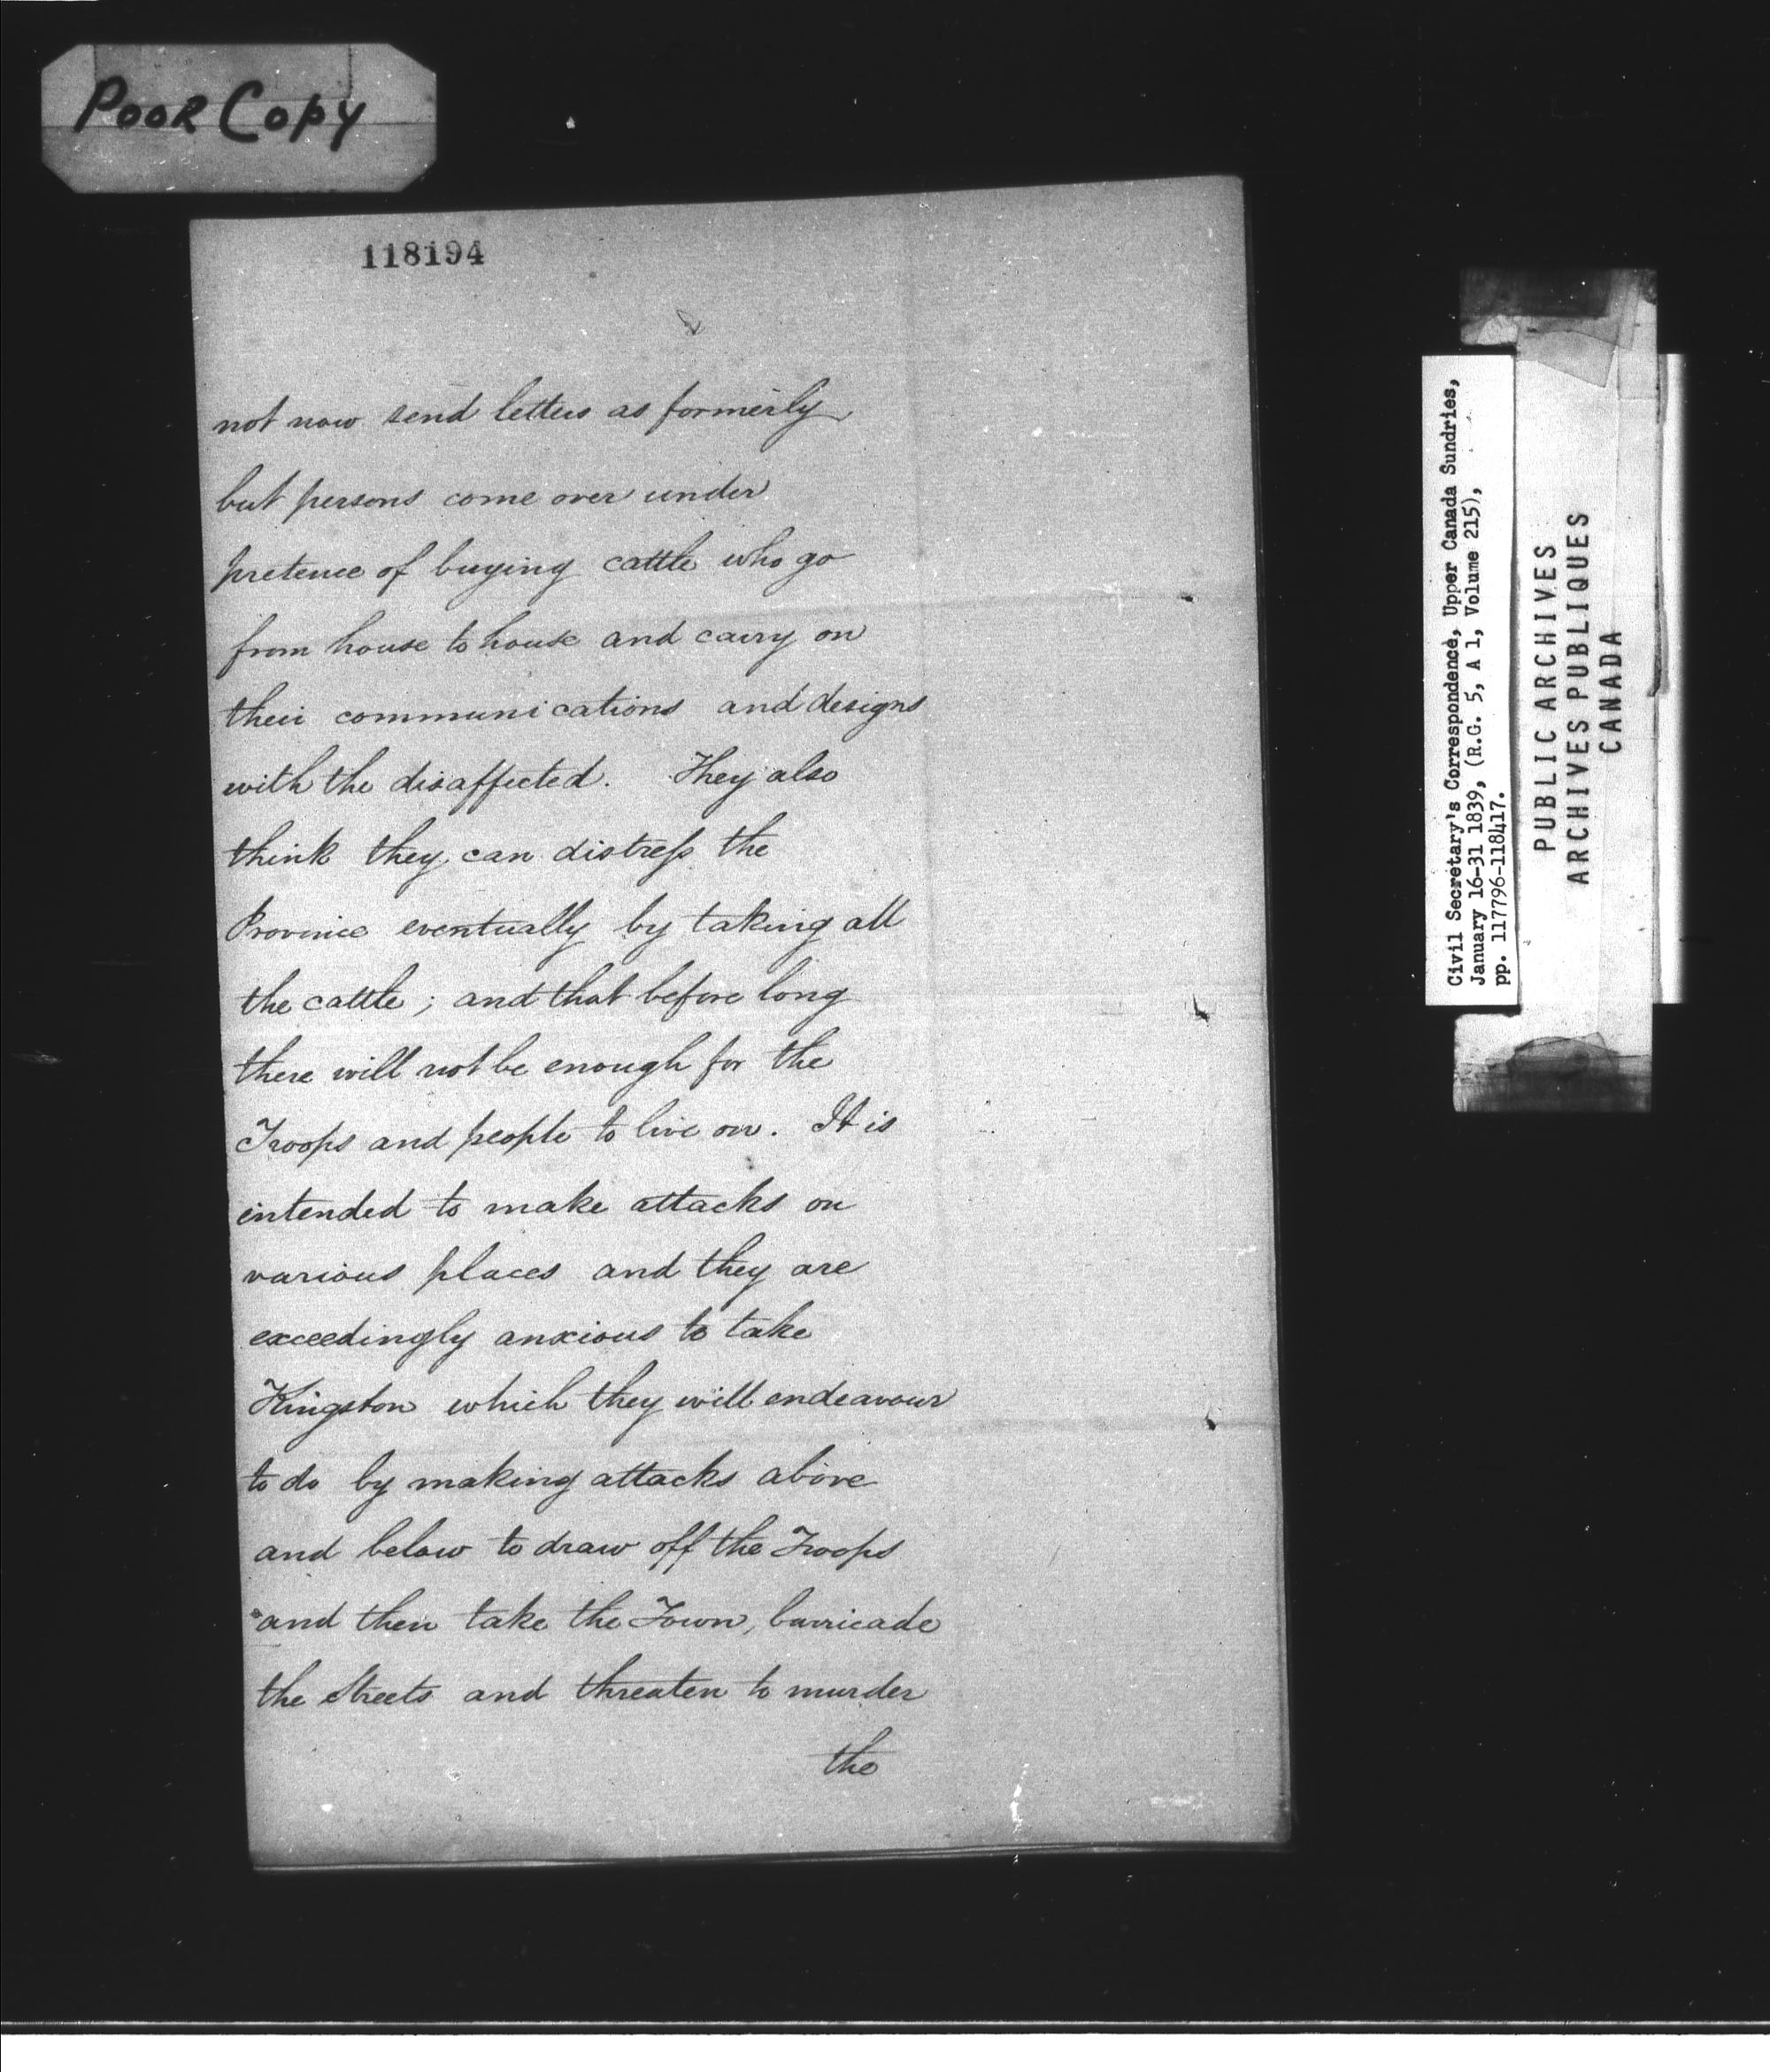 Poor Copy
118194
not now send letters as formerly
but persons come over under
pretence of buying cattle who go
from house to house and carry on
their communications and designs
with the disaffected. They also
think they can distreſs the
Province eventually by taking all
the cattle; and that before long
there will not be enough for the
Troops and people to live on. It is
intended to make attacks on
various places and they are
exceedingly anxious to take
Kingston which they will endeavour
to do by making attacks above
and below to draw off the Troops
and then take the Town, barricade
the Streets and threaten to murder
the
Civil Secretary's Correspondence, Upper Canada Sundries,
January 16-31 1839, (R.G. 5, A 1, Volume 215),
pp. 117796-118417.
PUBLIC ARCHIVES
ARCHIVES PUBLIQUES
CANADA